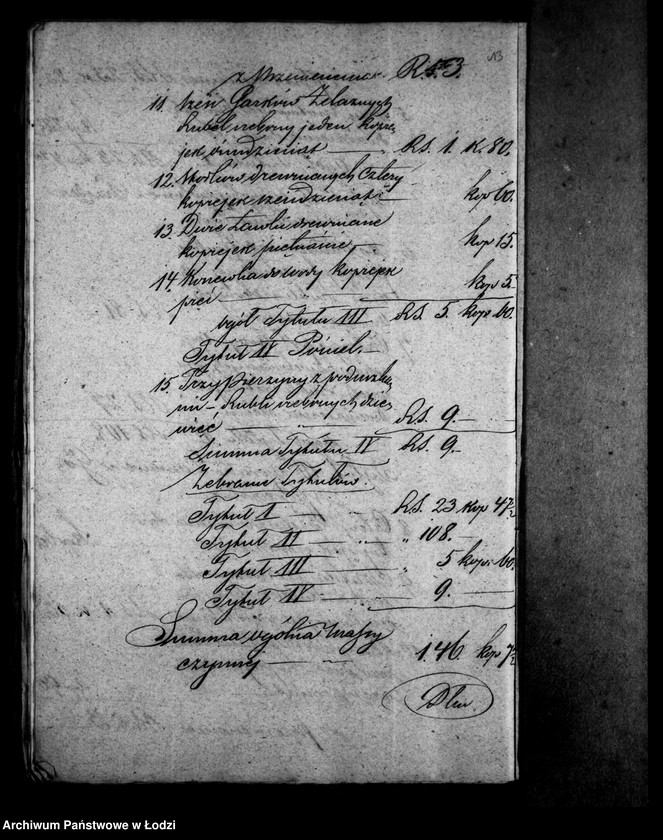 13
z Przeniesienia. RS. 3.
11. Sześć Garków Żelaznych
Rubel srebrny jeden kopie-
jek ośmdziesiąt — RS. 1. k. 80.
12. drewnianych cztery
kopiejek sześdziesiąt — kop 60.
13. Dwie Ławki drewniane
kopiejek piętnaście — kop 15.
14. Konewka do wody kopiejek
pięć — kop 5
ogół Tytułu III RS. 5. kop. 60.
Tytuł IV Pościel. —
15. Trzy pierzyny z poduszka-
mi — Rubli srebrnych dzie-
więć — RS. 9. —
Summa Tytułu IV RS. 9. —
Zebranie Tytułów.
Tytuł I — „ — RS. 23 kop 47½
Tytuł II — „ — „ 108. —
Tytuł III — „ — „ 5 kop. 60.
Tytuł IV — „ — 9. —
Summa ogólna massy
czynnej — „ — 146. kop 7½
Archiwum Państwowe w Łodzi